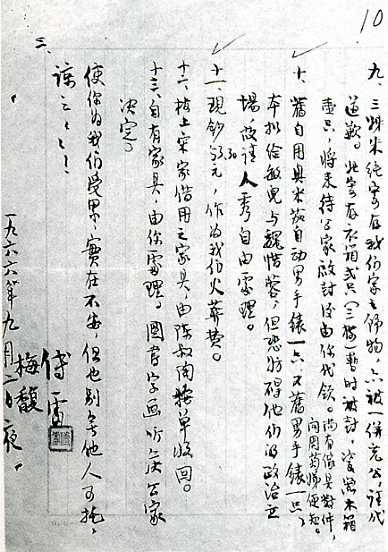 10
九、三姐朱純寄存我們家之飾物,亦被一併充公,請代
道歉。她寄存衣箱貳只(三樓)暫時被封,瓷器木箱
壹只,將來待公家啟封後由你代領。尚有傢具數件,
問周菊娣便知。
十、舊自用奧米茄自動男手錶一只,又舊男手錶一只,
本擬給敏兒與魏惜蓉,但恐妨碍他們的政治立
場,故請人秀自由處理。
十一、現鈔53.30元,作為我們火葬費。
十二、樓上宋家借用之家具,由陳叔陶按單收回。
十三、自有家具,由你處理。圖書字畫听候公家
決定。
使你為我們受累,實在不安,但也別無他人可托,
諒之諒之!
傅雷
梅馥
一九六六年九月二日夜